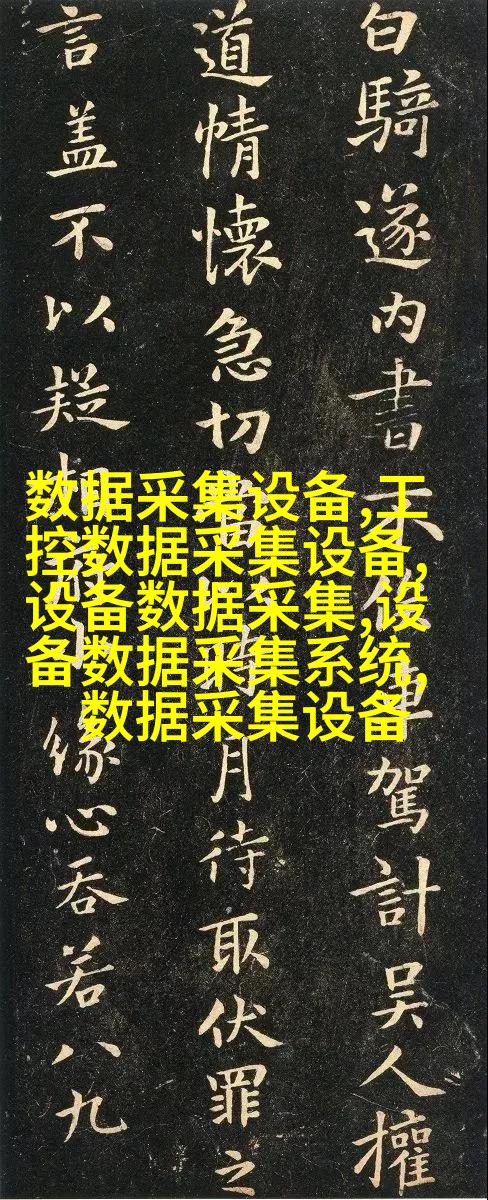 白騎遂内書不俟車駕計吳人權
道情懷急切當時月待取伏罪之
言盖不以疑缘心吞若八九
数据采集设备,工
控数据采集设备,
设备数据采集,设
备数据采集系统,
数据采集设备